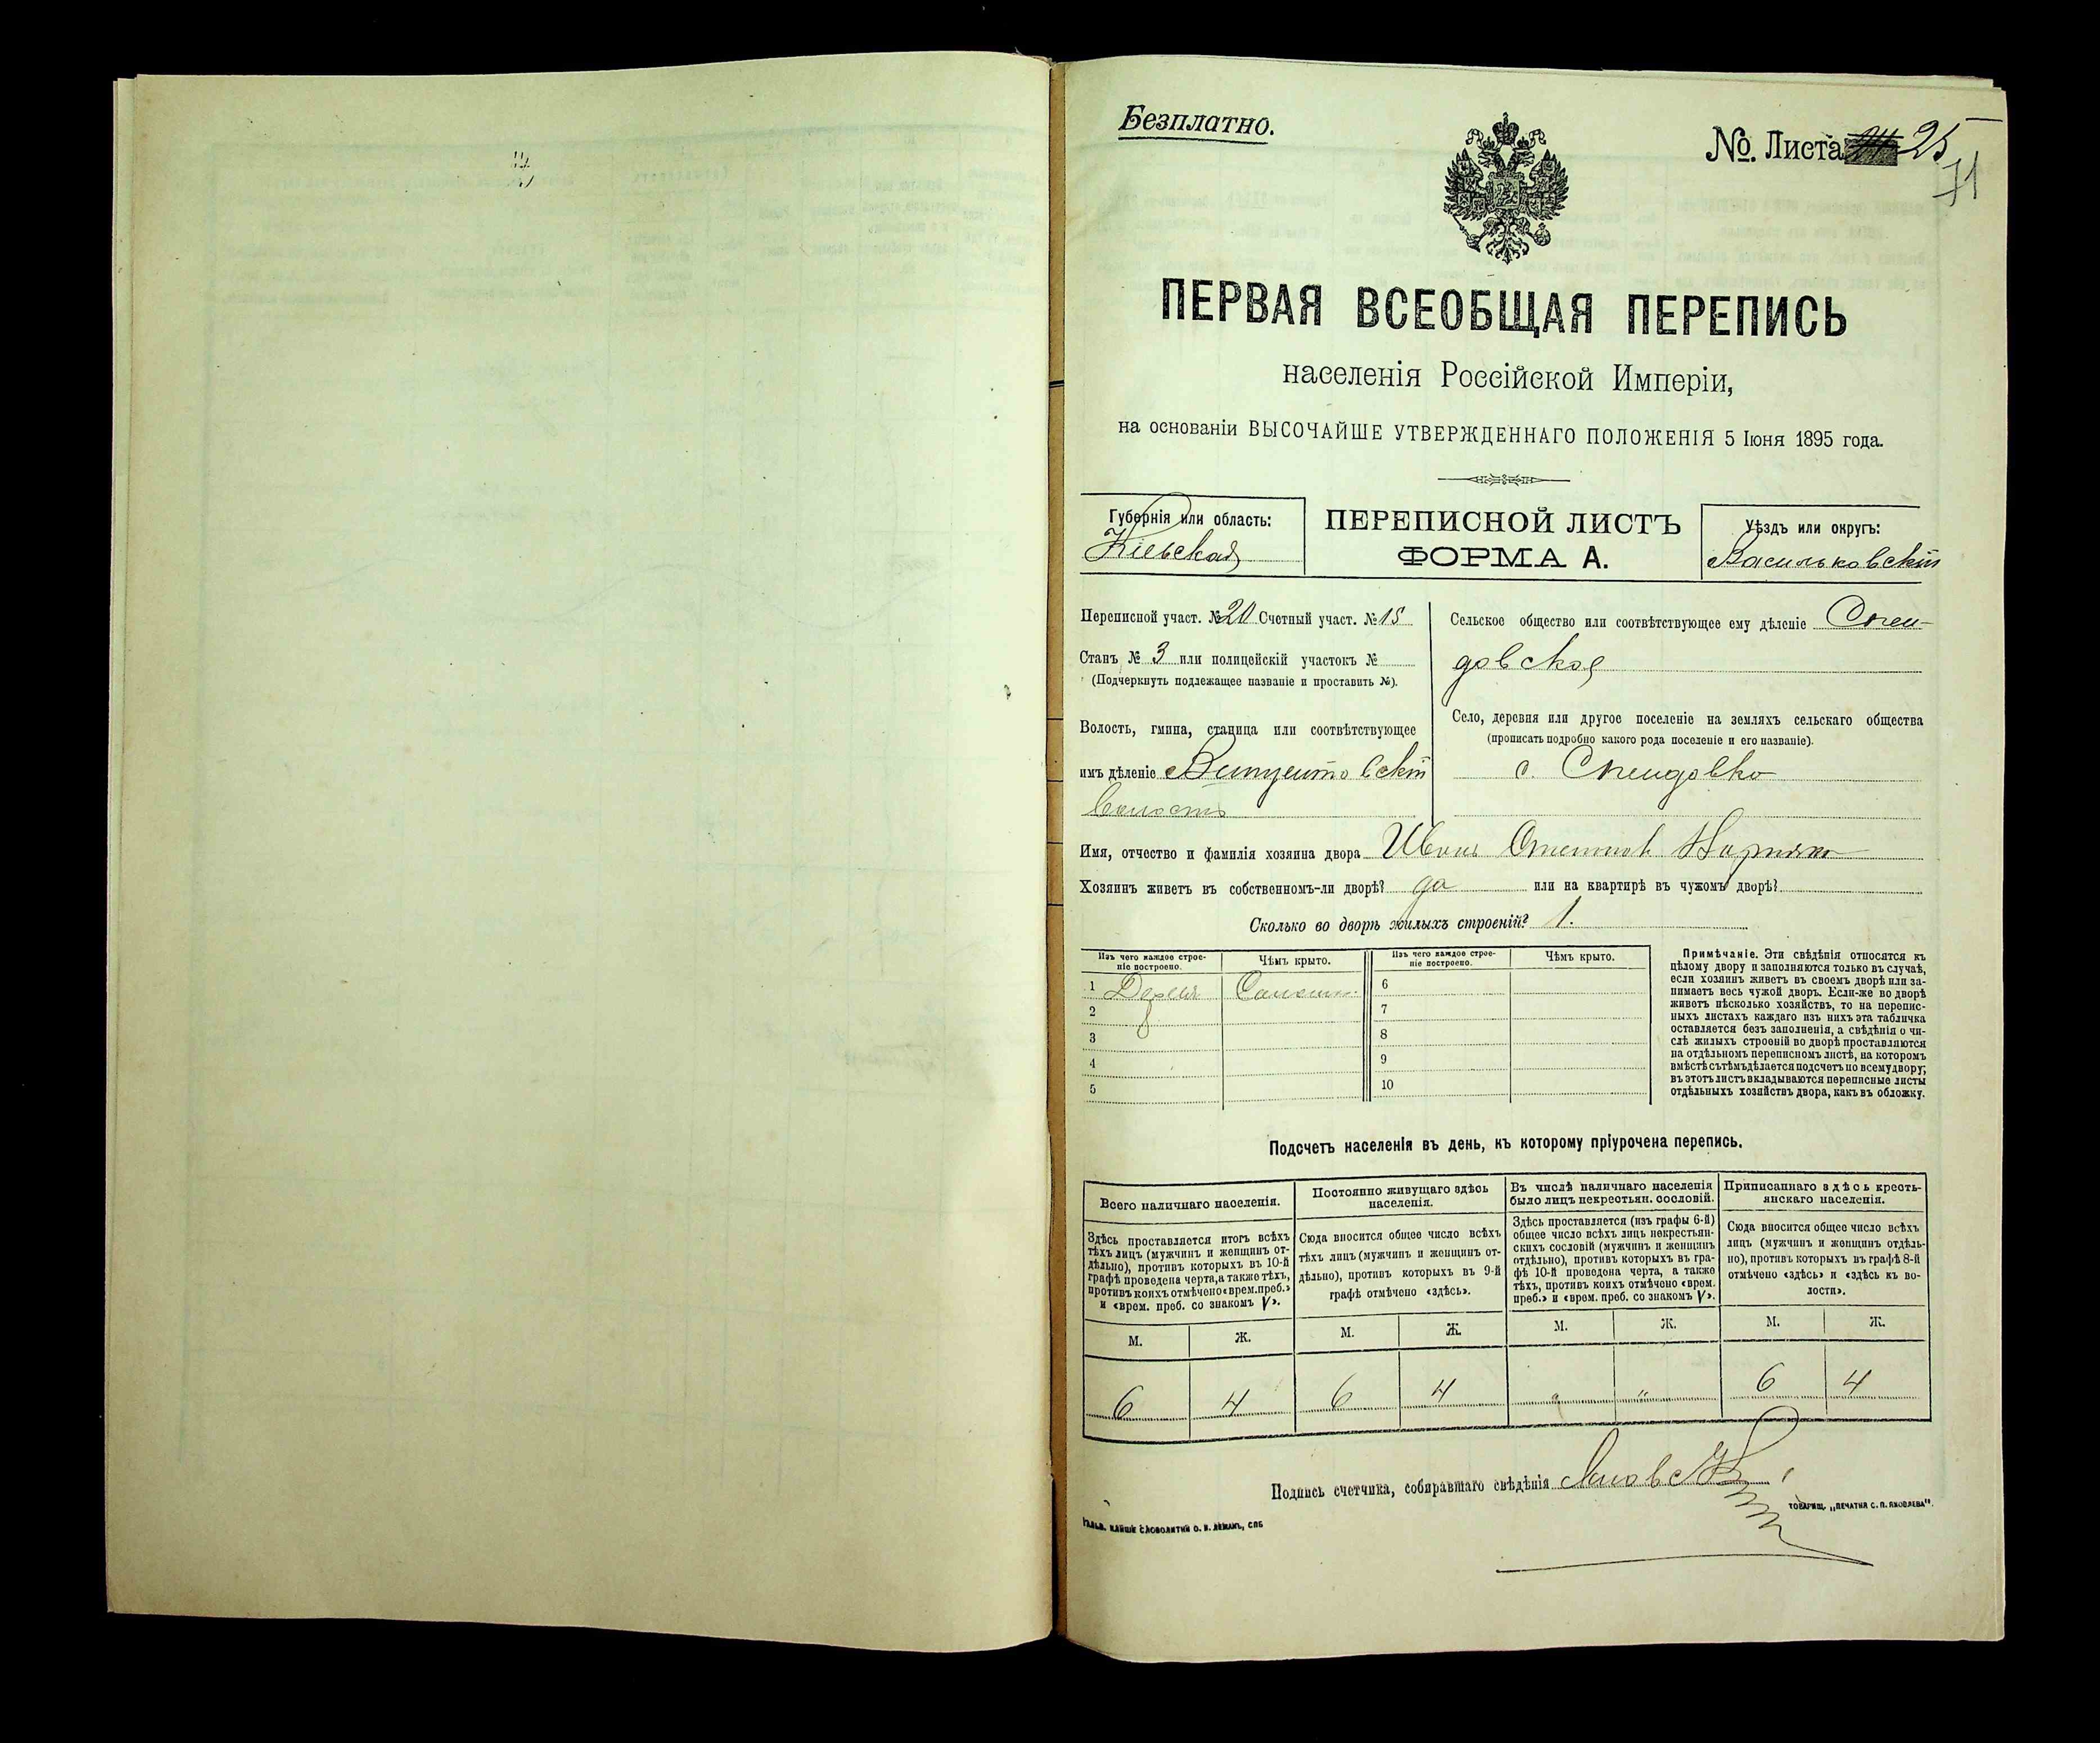 Безплатно.
№. Листа 25
71
ПЕРВАЯ ВСЕОБЩАЯ ПЕРЕПИСЬ
населенія Россійской Имперіи,
на основаніи ВЫСОЧАЙШЕ УТВЕРЖДЕННАГО ПОЛОЖЕНІЯ 5 Іюня 1895 года.
Губернія или область:
Кіевская
ПЕРЕПИСНОЙ ЛИСТЪ
ФОРМА А.
Уѣздъ или округъ:
Васильковскій
Переписной участ. № 20 Счетный участ. № 15
Станъ № 3 или полицейскій участокъ №
(Подчеркнуть подлежащее названіе и проставить №).
Волость, гмина, станица или соотвѣтствующее
имъ дѣленіе
волость
Сельское общество или соотвѣтствующее ему дѣленіе Спен-
довское
Село, деревня или другое поселеніе на земляхъ сельскаго общества
(прописать подробно какого рода поселеніе и его названіе).
с. Спендовка
Имя, отчество и фамилія хозяина двора Иванъ
Хозяинъ живетъ въ собственномъ-ли дворѣ? да или на квартирѣ въ чужомъ дворѣ?
Сколько во дворѣ жилыхъ строеній? 1.
Изъ чего каждое строе-
ніе построено.
Чѣмъ крыто.
Изъ чего каждое строе-
ніе построено.
Чѣмъ крыто.
1 Дерева Соломою
2
3
4
5
6
7
8
9
10
Примѣчаніе. Эти свѣдѣнія относятся къ
цѣлому двору и заполняются только въ случаѣ,
если хозяинъ живетъ въ своемъ дворѣ или за-
нимаетъ весь чужой дворъ. Если-же во дворѣ
живетъ нѣсколько хозяйствъ, то на перепис-
ныхъ листахъ каждаго изъ нихъ эта табличка
оставляется безъ заполненія, а свѣдѣнія о чи-
слѣ жилыхъ строеній во дворѣ проставляются
на отдѣльномъ переписномъ листѣ, на которомъ
вмѣстѣ съ тѣмъ дѣлается подсчетъ по всему двору;
въ этотъ листъ вкладываются переписные листы
отдѣльныхъ хозяйствъ двора, какъ въ обложку.
Подсчетъ населенія въ день, къ которому пріурочена перепись.
Всего наличнаго населенія.
Постоянно живущаго здѣсь
населенія.
Въ числѣ наличнаго населенія
было лицъ некрестьян. сословій.
Приписаннаго здѣсь кресть-
янскаго населенія.
Здѣсь проставляется итогъ всѣхъ
тѣхъ лицъ (мужчинъ и женщинъ от-
дѣльно), противъ которыхъ въ 10-й
графѣ проведена черта, а также тѣхъ,
противъ коихъ отмѣчено «врем. преб.»
и «врем. преб. со знакомъ V».
Сюда вносится общее число всѣхъ
тѣхъ лицъ (мужчинъ и женщинъ от-
дѣльно), противъ которыхъ въ 9-й
графѣ отмѣчено «здѣсь».
Здѣсь проставляется (изъ графы 6-й)
общее число всѣхъ лицъ некрестьян-
скихъ сословій (мужчинъ и женщинъ
отдѣльно), противъ которыхъ въ гра-
фѣ 10-й проведена черта, а также
тѣхъ, противъ коихъ отмѣчено «врем.
преб.» и «врем. преб. со знакомъ V».
Сюда вносится общее число всѣхъ
лицъ (мужчинъ и женщинъ отдѣль-
но), противъ которыхъ въ графѣ 8-й
отмѣчено «здѣсь» и «здѣсь къ во-
лости».
М. Ж. М. Ж. М. Ж. М. Ж.
6 4 6 4 " " 6 4
Подпись счетчика, собиравшаго свѣдѣнія
ТОВАРИЩ. „ПЕЧАТНЯ С. П. ЯКОВЛЕВА".
СЛОВОЛИТНИ О. И. ЛЕМАНЪ, СПБ